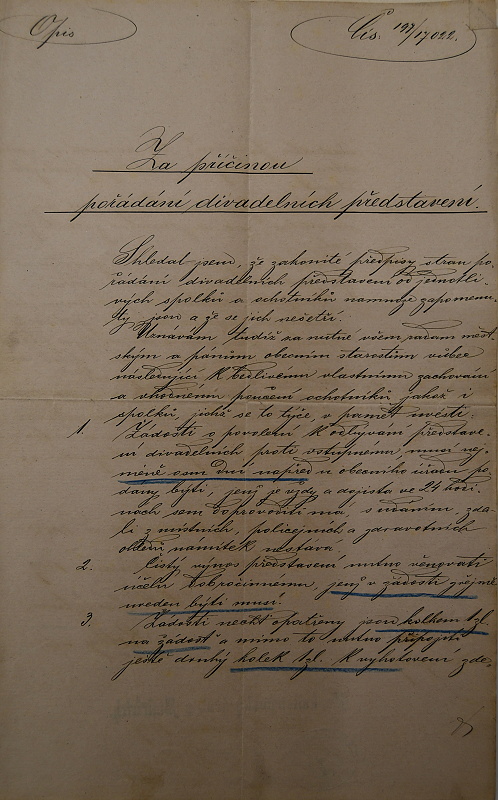 Opis
Čís. 197/17022.
Za příčinou
pořádání divadelních představení.
Shledal jsem, že zákonité předpisy stran po-
řádání divadelních představení od jednotli-
vých spolků a ochotníků namnoze zapomenu-
ty jsou a že se jich nešetří.
Uznávám tudíž za nutné všem radám měst-
ským a pánům obecním starostům vůbec
následující k bedlivému vlastnímu zachování
a vhodnému poučení ochotníků jakož i
spolků, jichž se to týče, v paměť uvésti:
1. Žádosti o povolení k odbývání představe-
ní divadelních proti vstupnému, musí nej-
méně osm dní napřed u obecního úřadu po-
dány býti, jenž je vždy a dojista ve 24 hodi-
nách sem dopraviti má, s udáním, zda-
li z místních, policejních a zdravotních
ohledů námitek nestává.
2. Čistý výnos představení nutno věnovati
účelu dobročinnému, jenž v žádosti zřejmě
uveden býti musí.
3. Žádosti nechť opatřeny jsou kolkem 1 zl.
na žádost a mimo to nutno připojiti
ještě druhý kolek 1 zl. k vyhotovení zde-